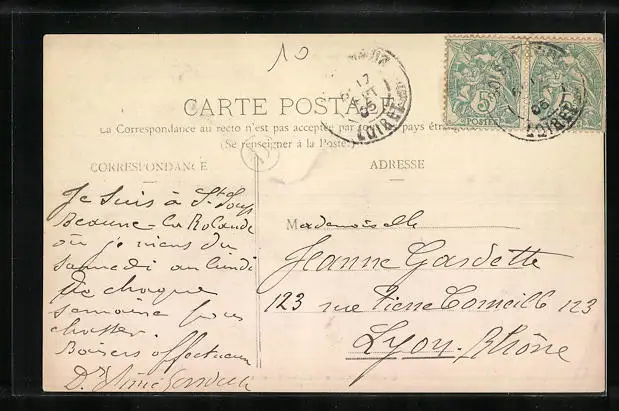 10
CARTE POSTALE
La Correspondance au recto n'est pas acceptée par tous les pays étrangers
(Se renseigner à la Poste)
CORRESPONDANCE
ADRESSE
Je suis à St
Beaune la Rolande
où je viens du
samedi au lundi
de chaque
semaine pour
chasser.
Baisers affectueux
Dr
Mademoiselle
Jeanne Gardette
123 rue Pierre Corneille 123
Lyon. Rhône
5
POSTES
17
05
LOIRET
05
LOIRET